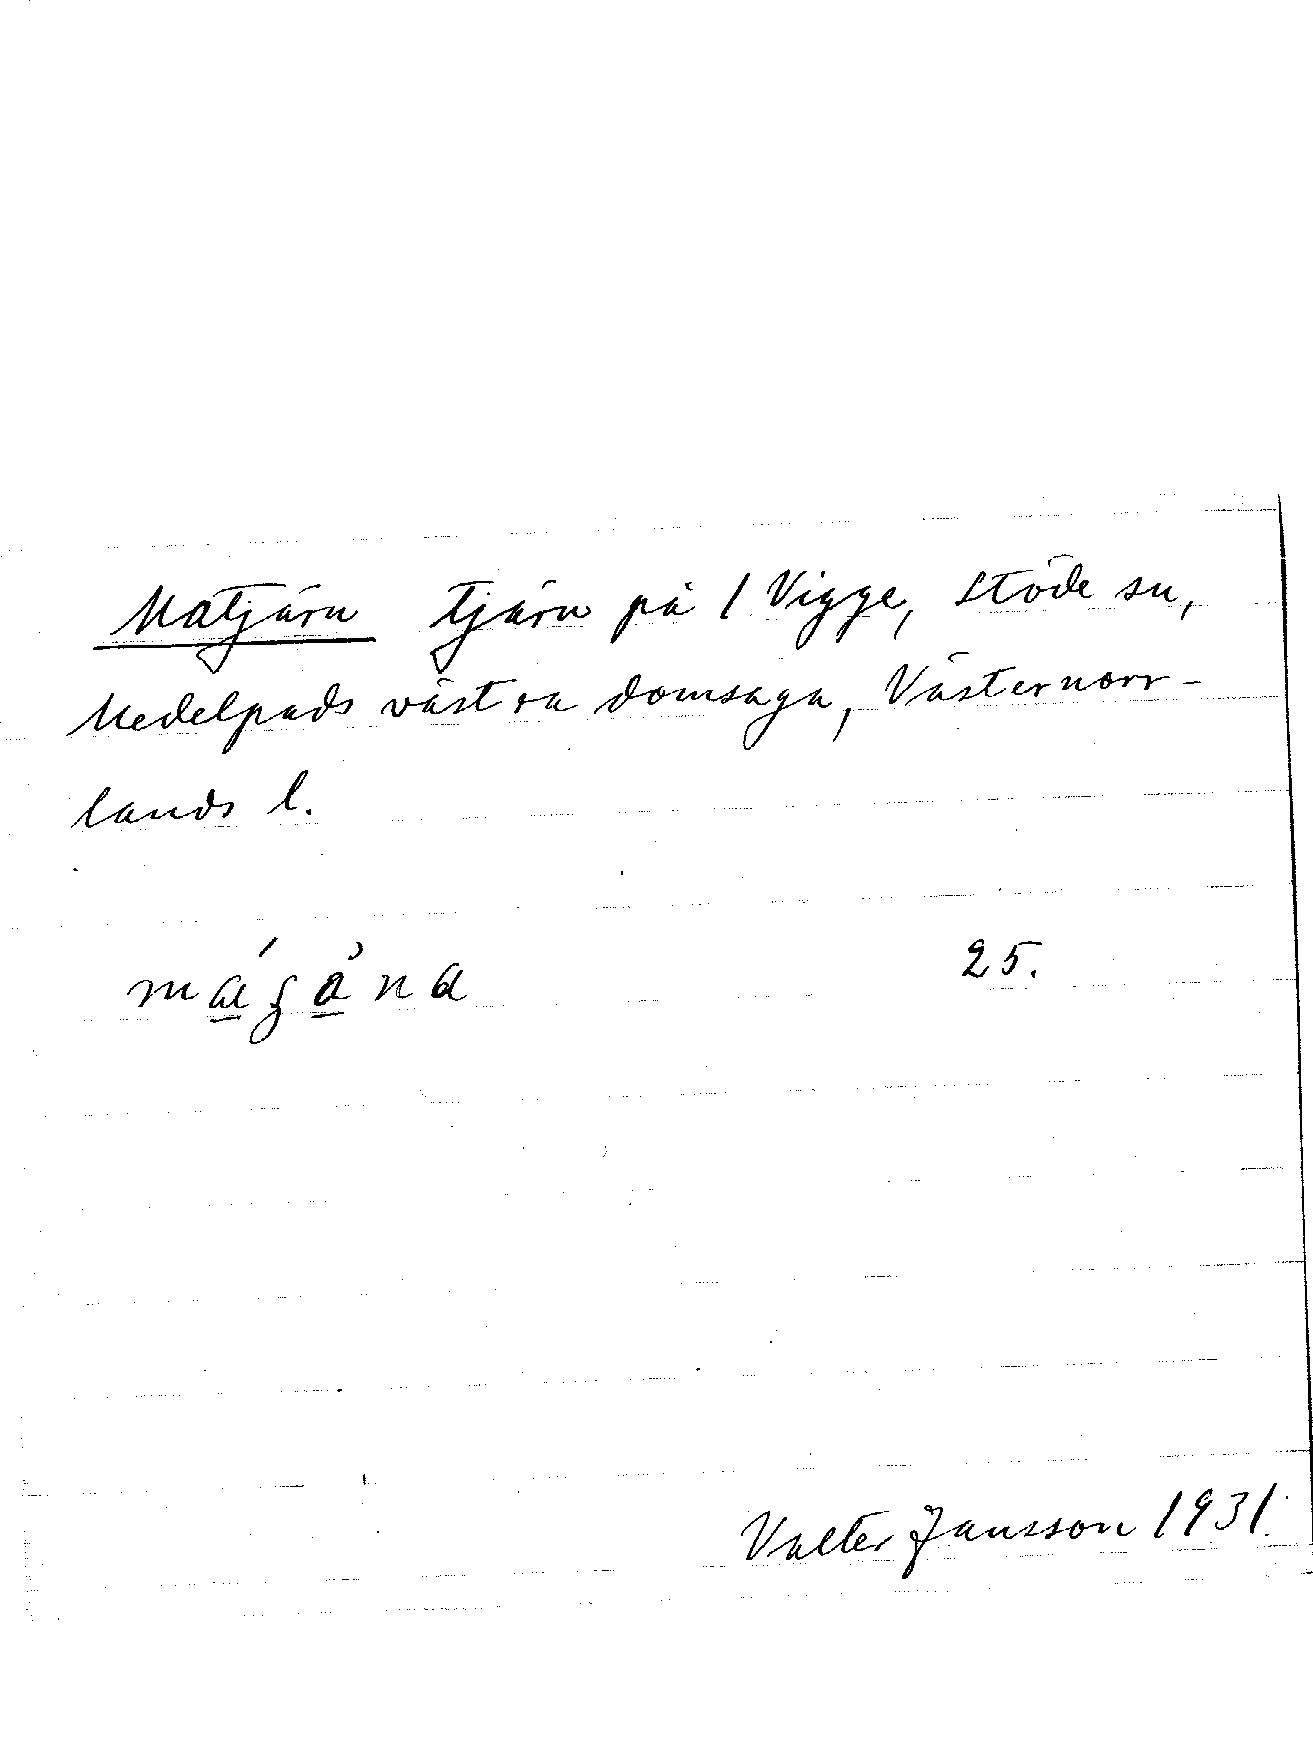 Matjärn tjärn på 1 Vigge, Stöde sn,
Medelpads västra domsaga, Västernorr-
lands l.
25.
Valter Jansson 1931.